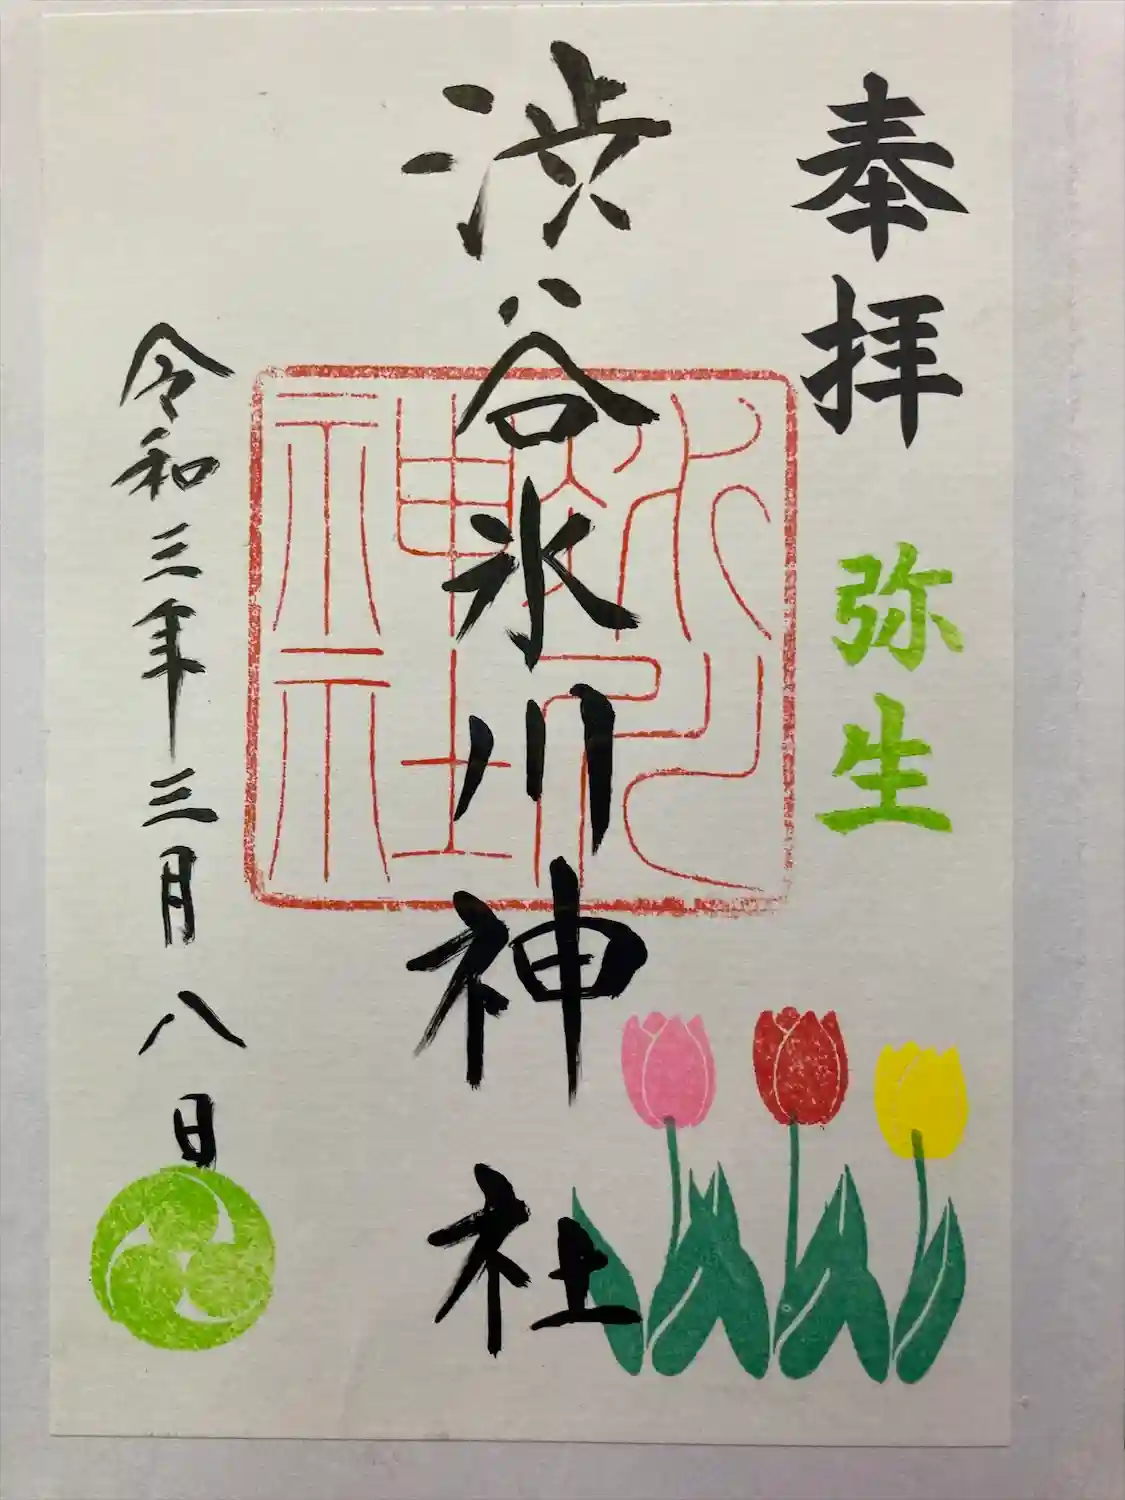 奉拝
弥生
渋谷氷川神社
氷川
神社
令和三年三月八日